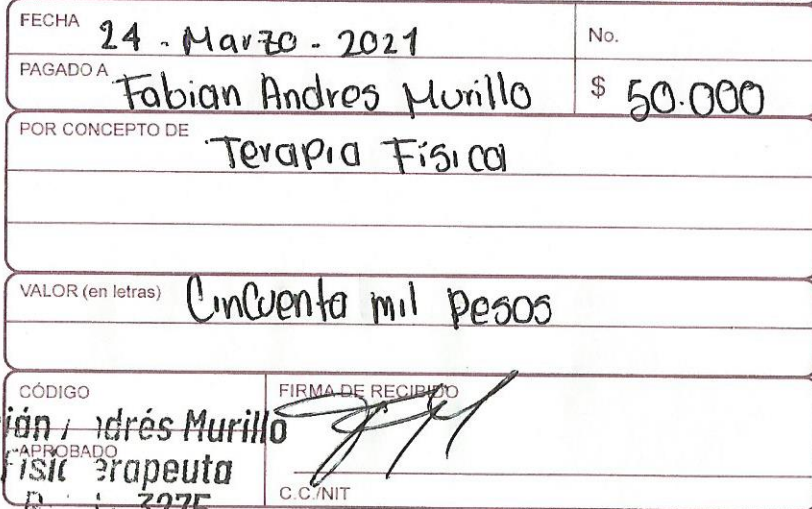 FECHA 24 - Marzo - 2021 No.
PAGADO A Fabian Andres Murillo $ 50.000
POR CONCEPTO DE Terapia Física
VALOR (en letras) Cincuenta mil pesos
CÓDIGO FIRMA DE RECIBIDO
Andrés Murillo
APROBADO
C.C./NIT